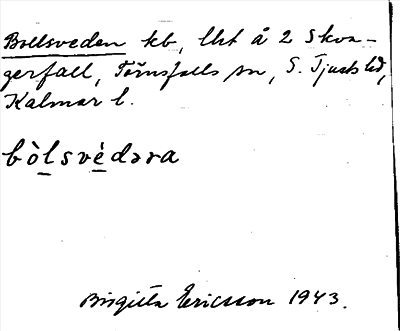 Bollsveden kb, lht å 2 Skva-
gerfall, Törnsfalls sn, S. Tjusts hd,
Kalmar l.
bòl̲své̲dəra
Birgitta Ericsson 1943.